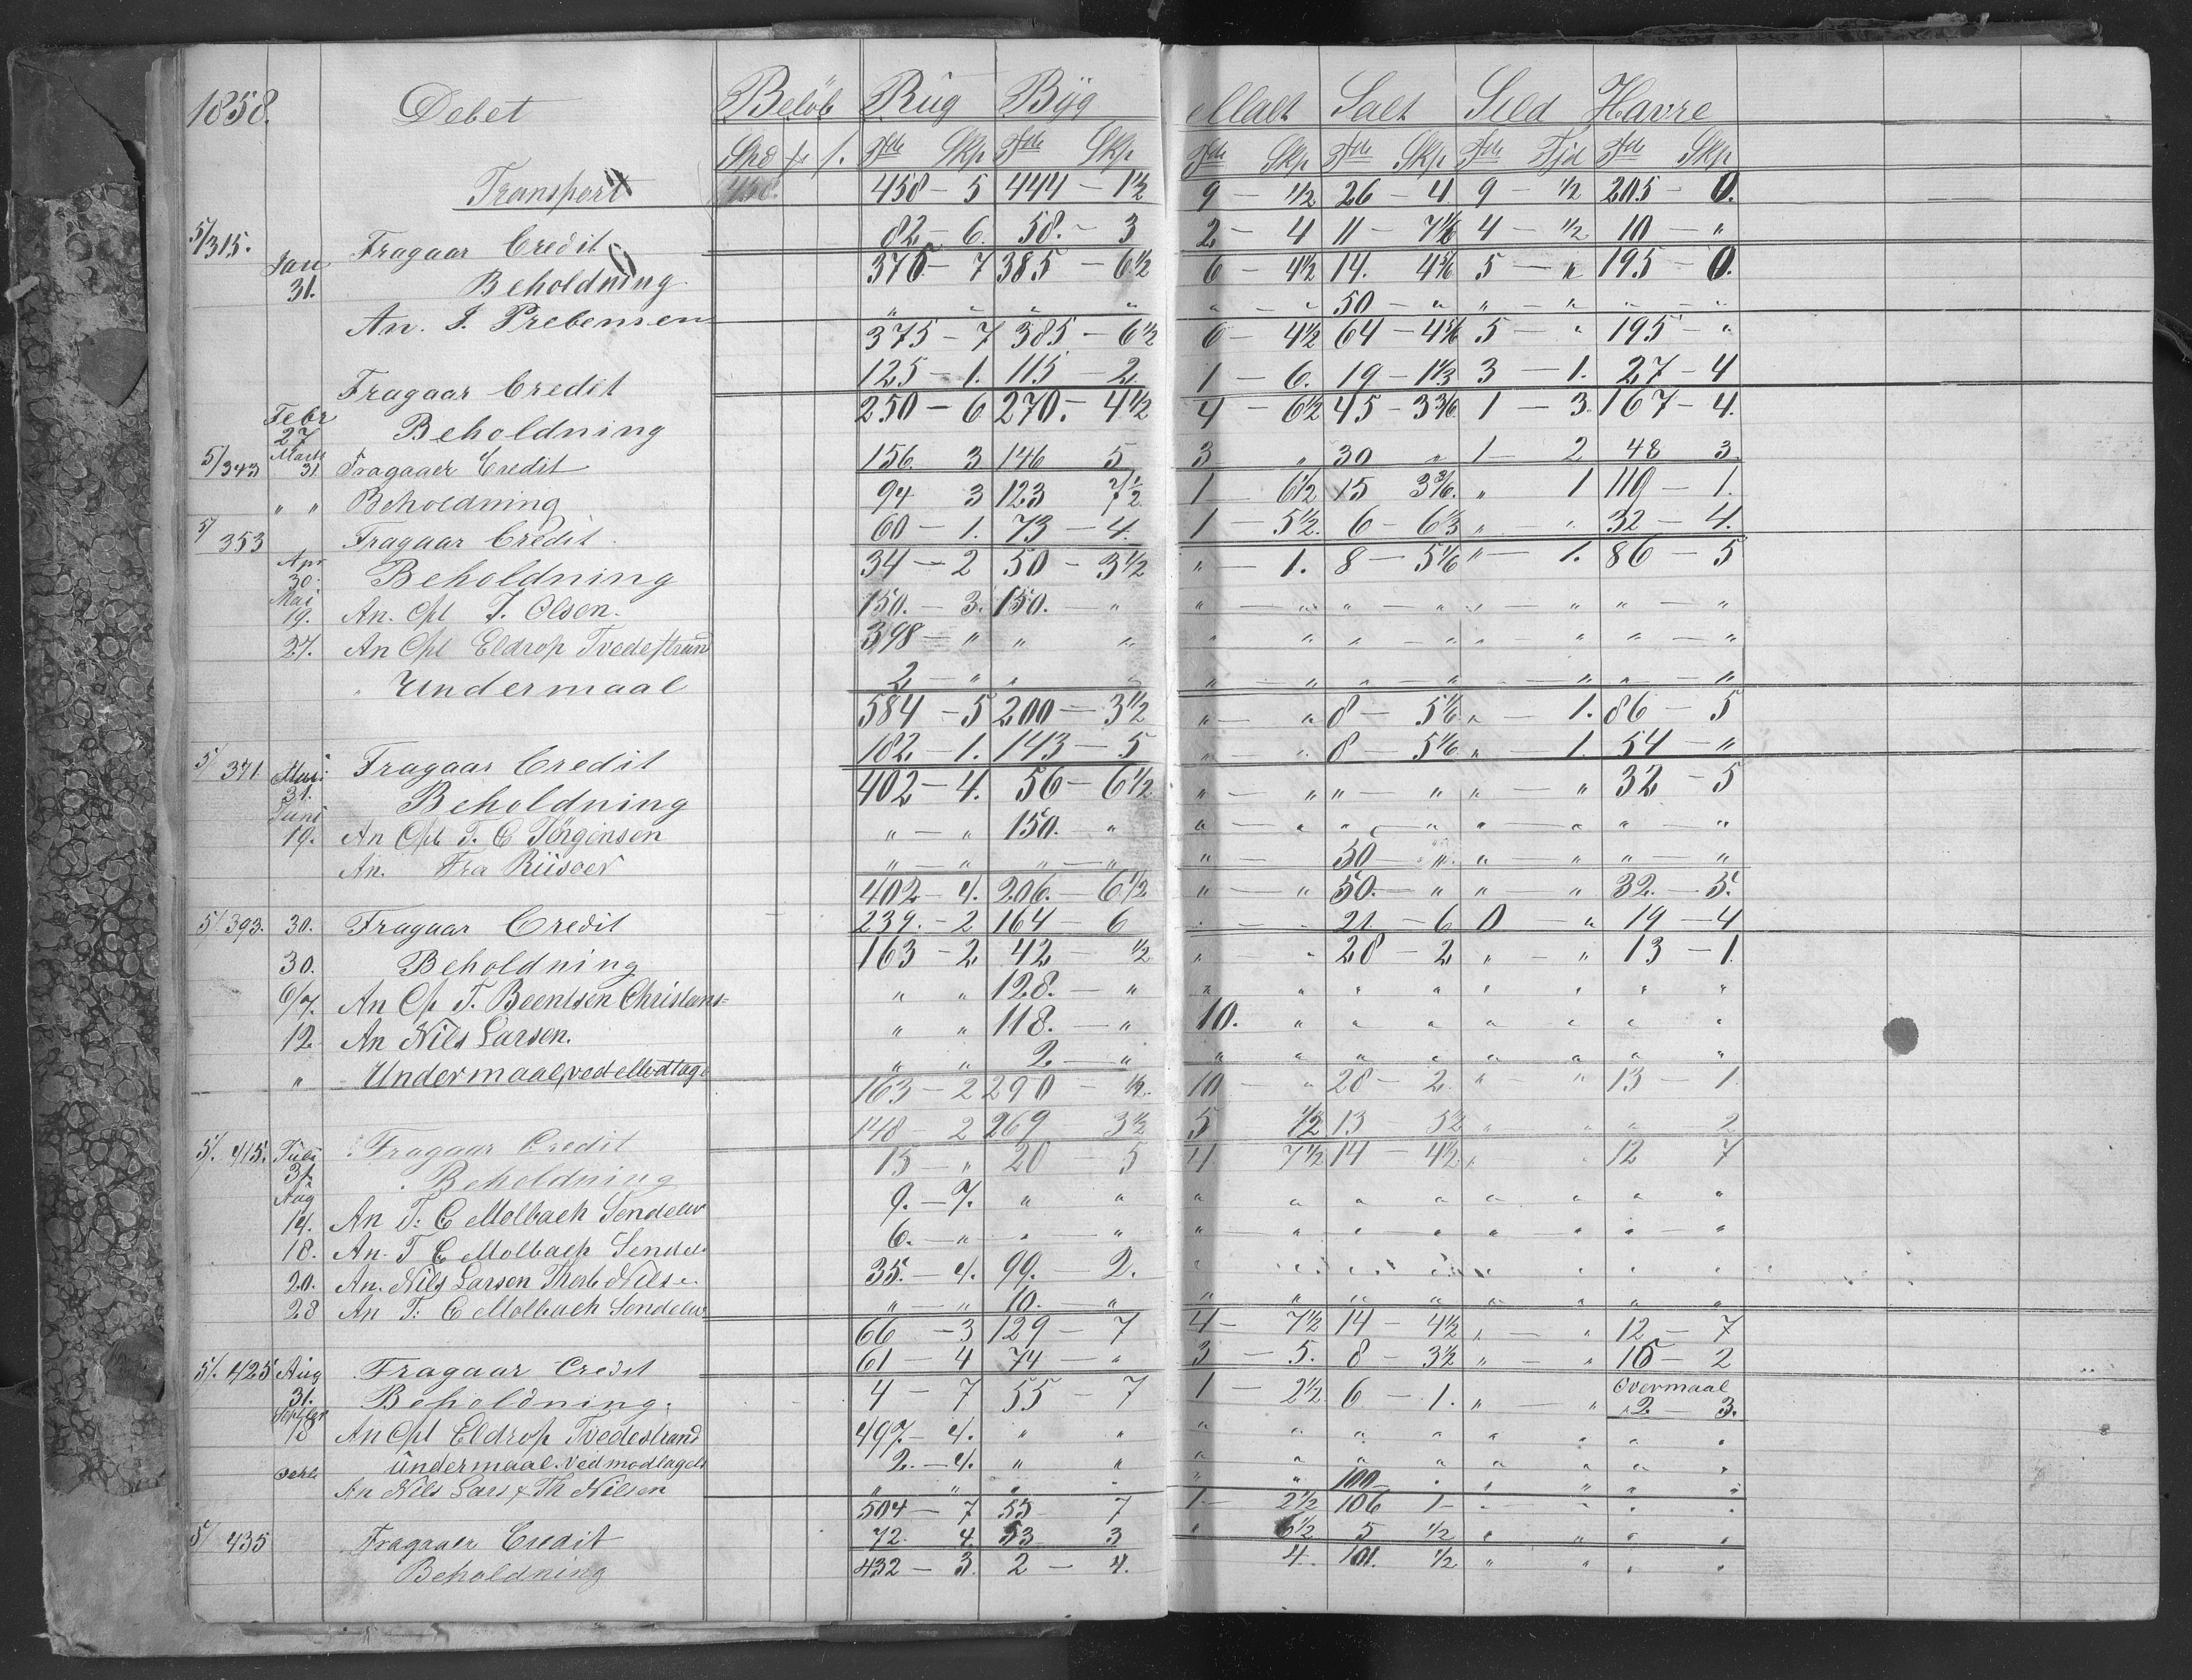 1858. Debet Beløb Rug Byg Malt Salt Sild Havre
Spd Tde Skp Tde Skp Tde Skp Tde Skp Tde Fjd Tde Skp
Transport 458 - 5 444 - 1½ 9 - ½ 26 - 4 9 - ½ 205 - 0.
5/315. Fragaar Credit 82 - 6. 58. - 3 2 - 4 11 - 7 4 - ½ 10 - "
Jan 31. Beholdning 375 - 7 385 - 6½ 6 - 4½ 14. 4 5 - " 195 - 0.
An. J. Prebensen " " " " " - " 50 - " " - " " - "
375 - 7 385 - 6½ 6 - 4½ 64 - 4 5 - " 195 - "
Fragaar Credit 125 - 1. 115 - 2 1 - 6. 19 - 1⅓ 3 - 1. 27 - 4
Febr 27 Beholdning 250 - 6 270. - 4½ 4 - 6½ 45 - 3 1 - 3. 167 - 4.
5/343 Marts 31 Fragaaer Credit 156 3 146 5 3 " 30 " 1 - 2 48 3.
" " Beholdning 94 3 123 7½ 1 - 6½ 15 3 " 1 119 - 1.
5/353 Fragaar Credit. 60 - 1. 73 - 4. 1 - 5½. 6 - 6⅓ " - " 32 - 4.
Apr 30. Beholdning 34 - 2 50 - 3½ " - 1. 8 - 5⅙ " - 1. 86 - 5
Mai 19. An. Cpt J. Olsen. 150. - 3. 150. " " - " " - " " - " " - "
27. An Cpt Eldrop Tvedestrand 398 - " " " " " " - " " - " " - "
" Undermaal 2 - " " " " - " " - " " - " " - "
584 - 5 200 - 3½ " - " 8 - 5⅙ " - 1. 86 - 5
5/371 Mai 31. Fragaar Credit 182 - 1. 143 - 5 " - " 8 - 5⅙ " - 1. 54 - "
Beholdning 402 - 4. 56 - 6½ " - " " - " " - " 32 - 5
Juni 19. An Cpt T. C Jörgensen " - " 150. " " - " " - " " - " " - "
An. Fra Riisoer " - " " - " " - 50 - " " - " " - "
402 - 4. 206. - 6½ " - " 50. - " " - " 32. - 5.
5/393. 30. Fragaar Credit 239. - 2 164 - 6 " - " 21 - 6 0 - " 19 - 4
30. Beholdning 163 - 2 42 - ½ " - " 28 - 2 " - " 13 - 1.
6/7. An Cp T. Beentsen Christians= " " 128. - " " " " " " " " "
12. An Nils Larsen. " " 118. - " 10. " " " " " " "
" Undermaal, ved Modtag " " 2 - " " " " " " " " "
163 - 2 290 - ½. 10 - " 28 - 2. " - " 13 - 1
5/. 415. Juli 31. Fragaar Credit 148 - 2 269 - 3½ 5 ½ 13 - 5½ " " " 2
Beholdning 15 - " 20 - 5 4 7½ 14 - 4½ " " 12 7
Aug 14. An T: C Molbach Sendelev 9. - 7. " " " " " " " " " "
18. An. T C Molbach Sendel. 6. - " " - " " - " " - " " - " " - "
20. An. Nils Larsen Thorb Nils 35. - 4. 99. - 2. " " " " " " " "
28 An T: C Molbach Sendelev " - " 10. " " " " " " " " "
66 - 3 129 - 7 4 - 7½ 14 - 4½ " - " 12 - 7
5/. 425 Aug Fragaar Credit 61 - 4 74 - " 3 - 5. 8 - 3½ " - " 15 - 2
31. Beholdning. 4 - 7 55 - 7 1 - 2½ 6 - 1. " - " Overmaal 2 - 3.
Septber 18 An Cpt Eldrop Tvedestrand 497. - 4. " " " " " " " " " "
Undermaal. ved modtagels 2. - 4. " " " " " " " " " "
Octb. An Nils Lars & Th Nilsen " " " " " " 100 - " " " " "
504 - 7 55 7 1 - 2½ 106 1 - " - " " "
5/435 Fragaaer Credit 72. 4. 53 3 " 6½ 5 ½ " " " "
Beholdning 432 - 3. 2 - 4. 4. 101. ½ " " " "